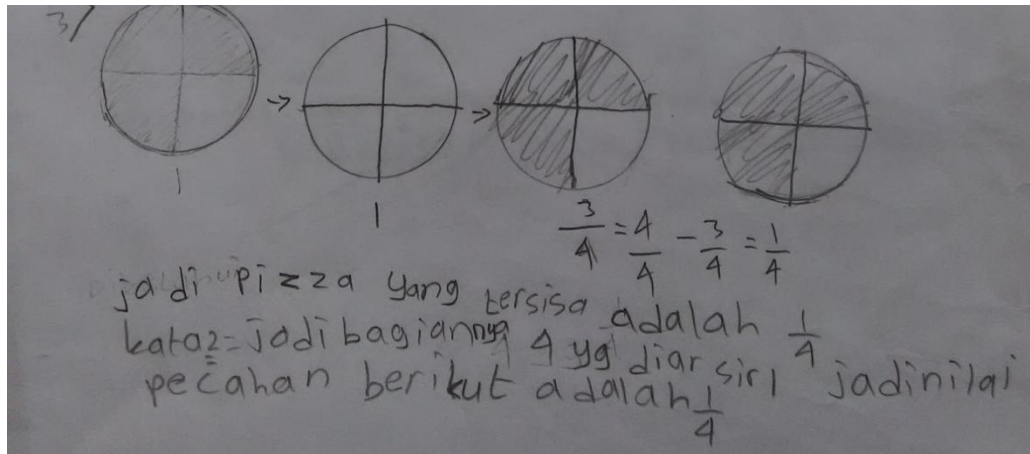 3/
1
1
3/4 = 4/4 - 3/4 = 1/4
jadi pizza yang tersisa adalah 1/4
kata2=jadi bagiannya 4 yg diarsir 1 jadi nilai
pecahan berikut adalah 1/4